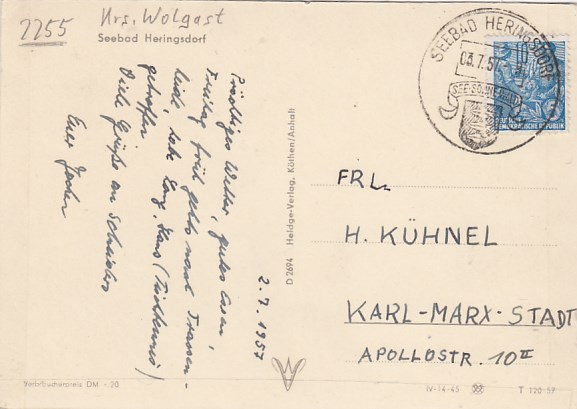 2255 Krs. Wolgast
Seebad Heringsdorf
Prächtiges Wetter, gutes Essen,
Freitag früh geht's nach Trassen-
heide, habe Hans
getroffen.
Viele Grüße an
Euer
2.7.1957
D 2694 Heldge-Verlag, Köthen/Anhalt
SEEBAD HERINGSDORF
03.7.57
SEE·SONNE·WALD
DEUTSCHE
DEMOKRATISCHE REPUBLIK
FRL.
H. KÜHNEL
KARL-MARX-STADT
APOLLOSTR. 10 II
Verbraucherpreis DM -.20
IV-14-45
T 120 57